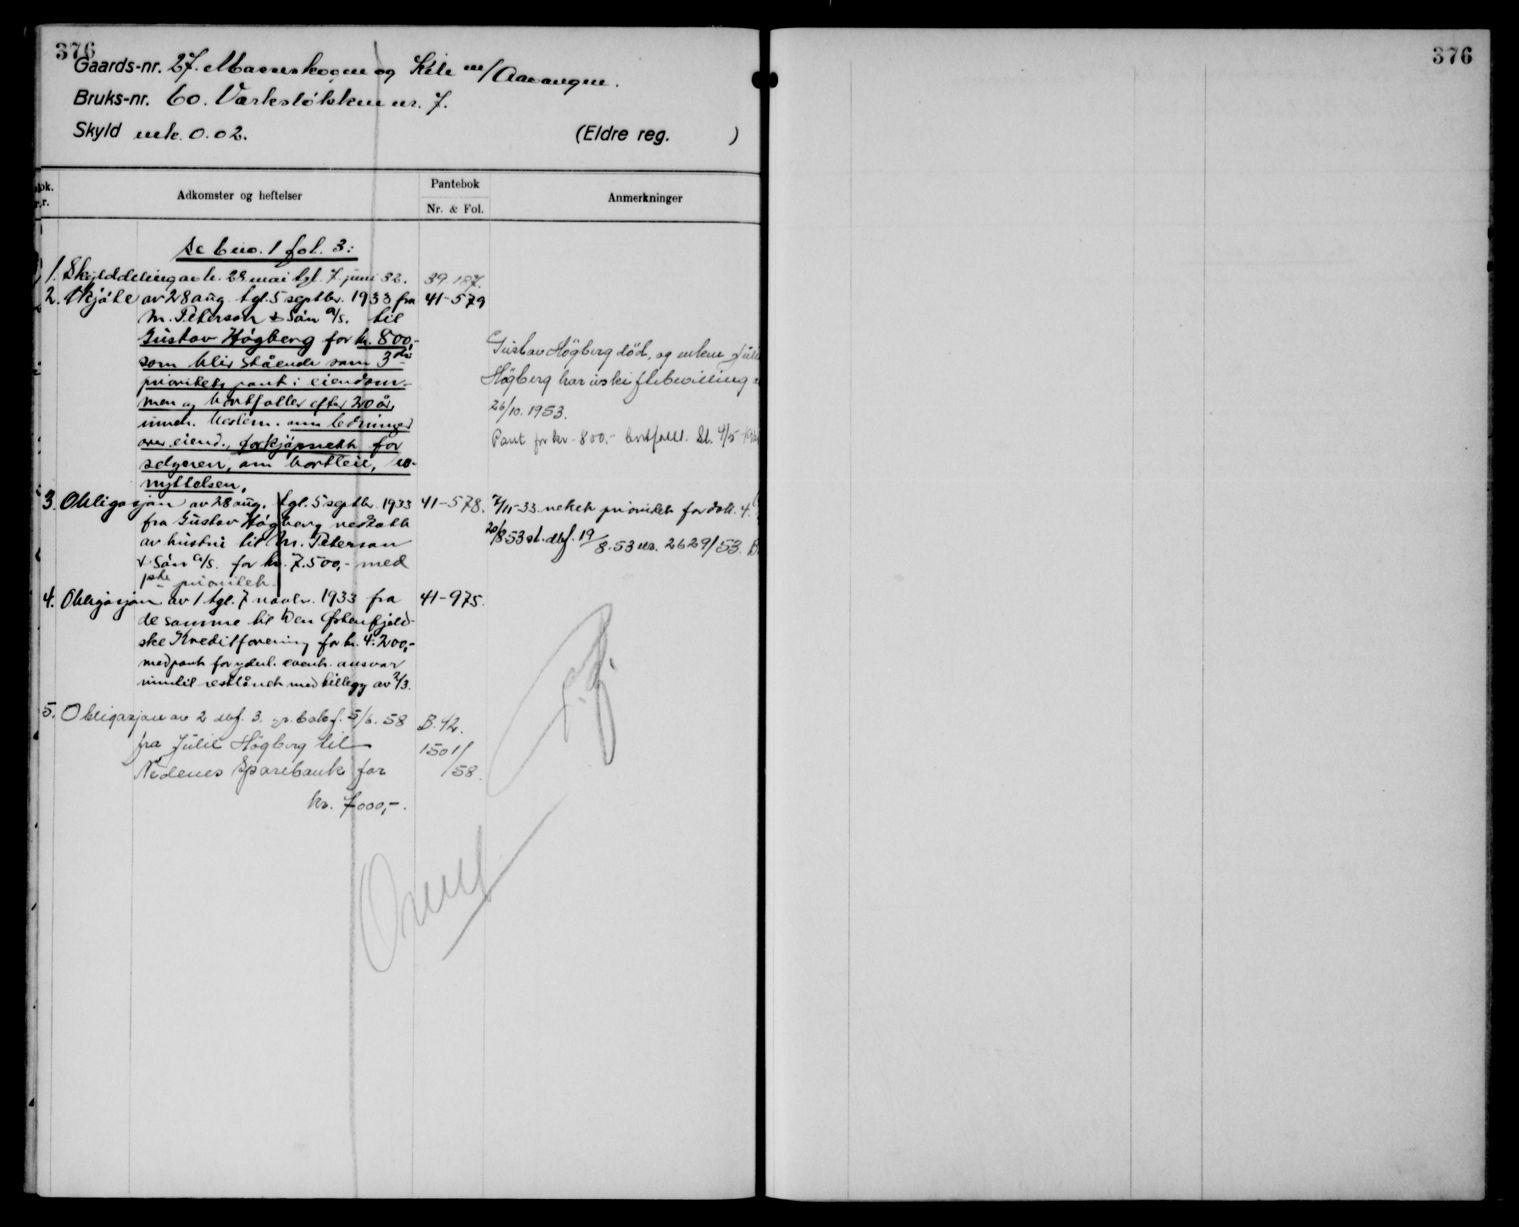 376
Gaards-nr. 27. Maeneskogen og Kile m/Aavangen.
Bruks-nr. 60. Værksløkken nr. 7.
Skyld mk. 0.02. (Eldre reg. )
Adkomster og heftelser
Pantebok
Nr. & Fol.
Anmerkninger
Se bno. 1 fol. 3:
1. Skylddeling avh. 28 mai tgl. 7. juni 32. 39
2. Skjøte av 28 aug. tgl. 5 septbr. 1933 fra 41-579
M. Peterson & Søn A/S. til
Gustav Högberg for kr. 800,-
som blir stående som 3die
prioritets pant i eiendom-
men og bortfaller efter 20 år,
inneh. bestem. om ledninger
over eiend., forkjøpsrett for
selgeren, om bortleie,
nyttelsen.
Gustav Högberg död, og enken Julie
Högberg har uskiftebevilling
26/10. 1953.
Pant for kr. 800.- bortfallt. Sl. 4/5
3. Obligasjon av 28 aug. tgl. 5 septbr. 1933 41-578.
fra Gustav Högberg vedtatt
av hustru til M. Peterson
& Søn A/S. for kr. 7.500,- med
pkt. prioritet.
7/11-33 veket prioritet for dok. 4.
20/8 53 sl. dbf. 19/8.53 nr. 2629/53.
4. Obligasjon av 1 tgl. 7 novbr. 1933 fra 41-975.
de samme til Den Østenfjeld-
ske Kreditforening for kr. 4.200,-
med pant for yderl. event. ansvar
inntil restlånet med tillegg av 2/3.
5. Obligasjon av 2 dbf. 3. 5/6. 58 B.42.
fra Julie Högberg til 1501/
Nedenes Sparebank for /58.
kr. 7000,-.
376